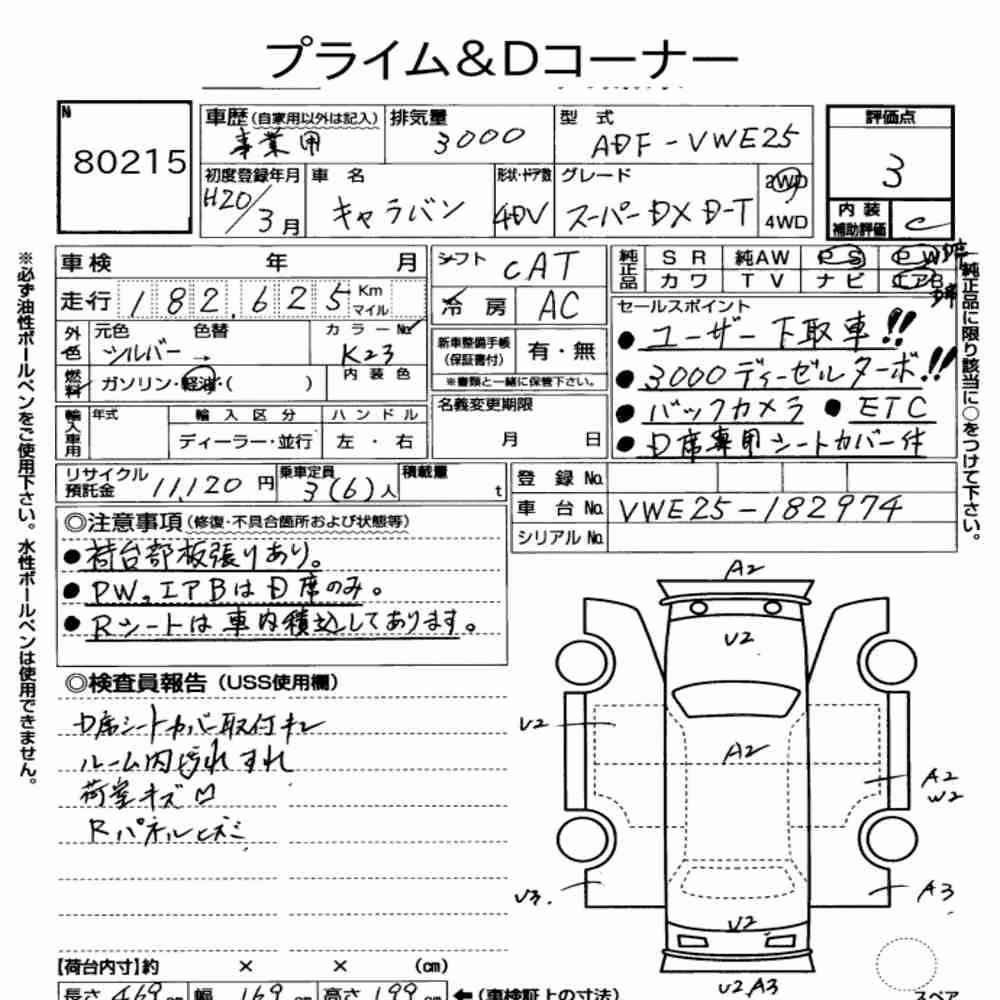 プライム&Dコーナー
№
80215
車歴 (自家用以外は記入)
事業用
排気量
3000
型 式
ADF-VWE25
評価点
3
初度登録年月
H20/3月
車 名
キャラバン
形状・ドア数
4DV
グレード
スーパーDX D-T
2WD
4WD
内 装
補助評価
C
※必ず油性ボールペンをご使用下さい。水性ボールペンは使用できません。
車 検 年 月
走行 182,625 Km
マイル
外色
元色 色替
シルバー →
カラーNo.
K23
燃料
ガソリン・軽油・( )
内 装 色
輸入車用
年式
輸 入 区 分
ディーラー・並行
ハ ン ド ル
左 ・ 右
シフト
CAT
冷 房
AC
新車整備手帳
(保証書付)
有・無
※書類と一緒に保管下さい。
名義変更期限
月 日
純正品
S R 純AW P S P W D席
カ ワ T V ナ ビ エアB D席
純正品に限り該当に○をつけて下さい。
セールスポイント
● ユーザー下取車!!
● 3000ディーゼルターボ!!
● バックカメラ ● ETC
● D席専用シートカバー付
リサイクル
預託金
11,120 円
乗車定員
3(6)人
積載量
t
登 録 No.
車 台 No.
VWE25-182974
シリアル No.
◎注意事項(修復・不具合箇所および状態等)
● 荷台部板張りあり。
● PW,エアBはD席のみ。
● Rシートは車内積込してあります。
◎検査員報告(USS使用欄)
D席シートカバー取付キレ
ルーム内汚れすれ
荷室キズ凹
Rパネルヒズミ
A2
U2
U2
A2
A2
W2
U3.
A3
U2
U2,A3
【荷台内寸】約 × × (cm)
長さ 469 cm 幅 169 cm 高さ 199 cm ←(車検証上の寸法)
スペア